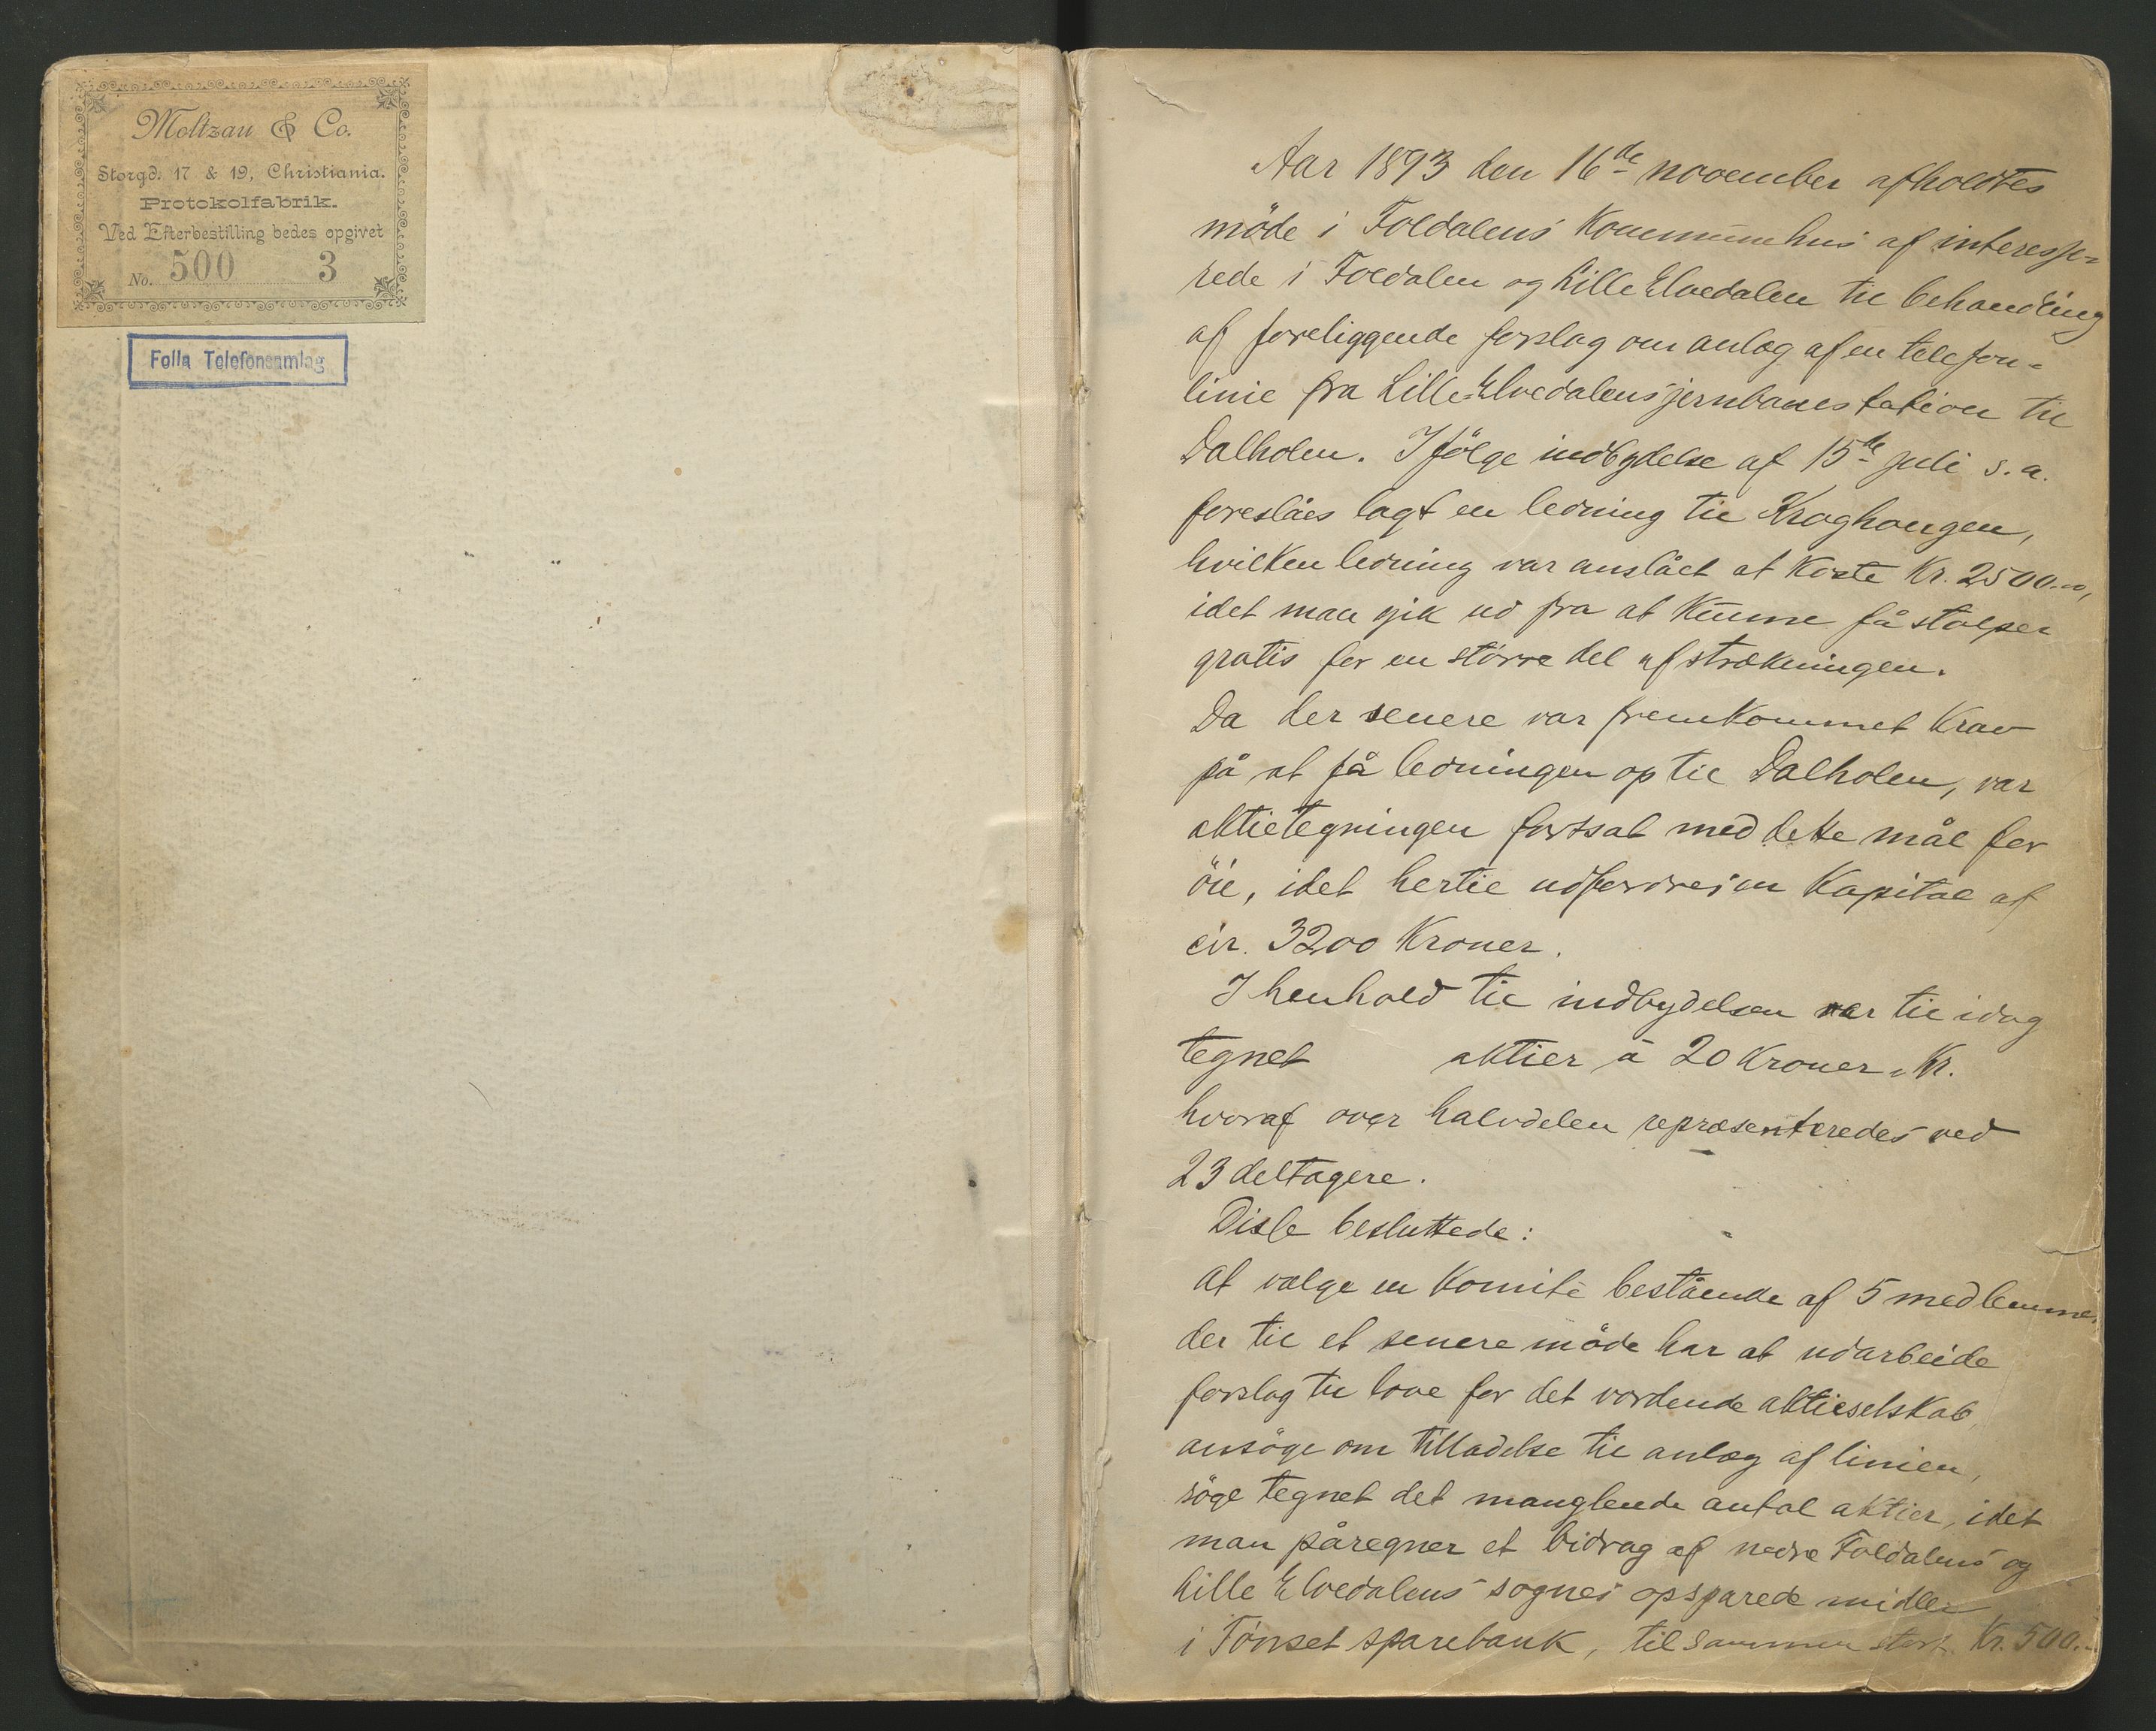 Moltzau & Co.
Storgd. 17 & 19, Christiania.
Protokolfabrik.
Ved Efterbestilling bedes opgivet
No. 500 3
Folla Telefonsamlag
Aar 1893 den 16de november afholdtes
möde i Foldalens Kommunehus af interesse-
rede i Foldalen og Lille Elvedalen til behandling
af foreliggende forslag om anlæg af en telefon-
linie fra Lille-Elvedalens jernbanestation til
Dalholen. Ifölge indbydelse af 15de juli s.a.
foreslåes lagt en ledning til Kroghaugen,
hvilken ledning var anslået at koste Kr. 2500.00,
idet man gik ud fra at kunne få stolper
gratis for en större del af strækningen.
Da der senere var fremkommet krav
på at få ledningen op til Dalholen, var
aktietegningen fortsat med dette mål for
öie, idet hertil udfordres en kapital af
cir. 3200 Kroner.
I henhold til indbydelsen var til idag
tegnet aktier à 20 Kroner, Kr.
hvoraf over halvdelen repræsenteredes ved
23 deltagere.
Disse besluttede:
at vælge en komite bestående af 5 medlemmer
der til et senere möde har at udarbeide
forslag til love for det vordende aktieselskab,
ansöge om tilladelse til anlæg af linien,
söge tegnet det manglende antal aktier, idet
man påregner et bidrag af nedre Foldalens og
Lille Elvedalens sognes opsparede midler
i Tönset sparebank, tilsammen stort Kr. 500.-